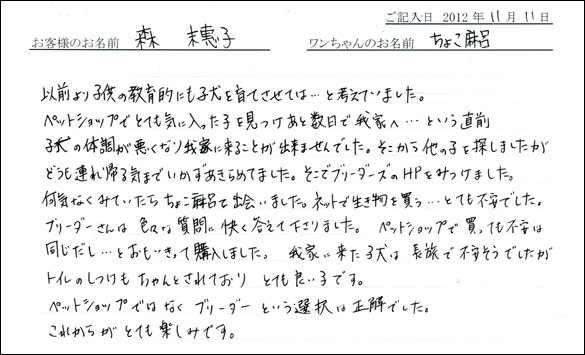 ご記入日 2012年11月11日
お客様のお名前 森 末恵子 ワンちゃんのお名前 ちょこ麻呂
以前より子供の教育的にも子犬を育てさせては…と考えていました。
ペットショップでとても気に入った子を見つけあと数日で我家へ…という直前
子犬の体調が悪くなり我家に来ることが出来ませんでした。そこから他の子を探しましたが
どうも連れ帰る気まで いかずあきらめてました。そこでブリーダーズのHPをみつけました。
何気なくみていたら ちょこ麻呂と出会いました。ネットで生き物を買う…とても不安でした。
ブリーダーさんは 色々な質問に 快く答えて下さりました。 ペットショップで買っても不安は
同じだし…とおもいきって購入しました。 我家に来た子犬は 長旅で不安そうでしたが
トイレのしつけも ちゃんとされており とても良い子です。
ペットショップではなく ブリーダー という選択は正解でした。
これからが とても楽しみです。